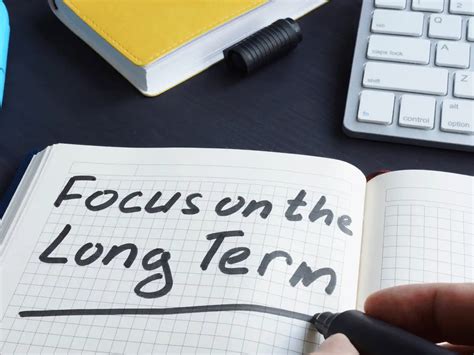 Focus on the
Long Term
tab
Q
caps lock
A
shift
Z
fn
control
option